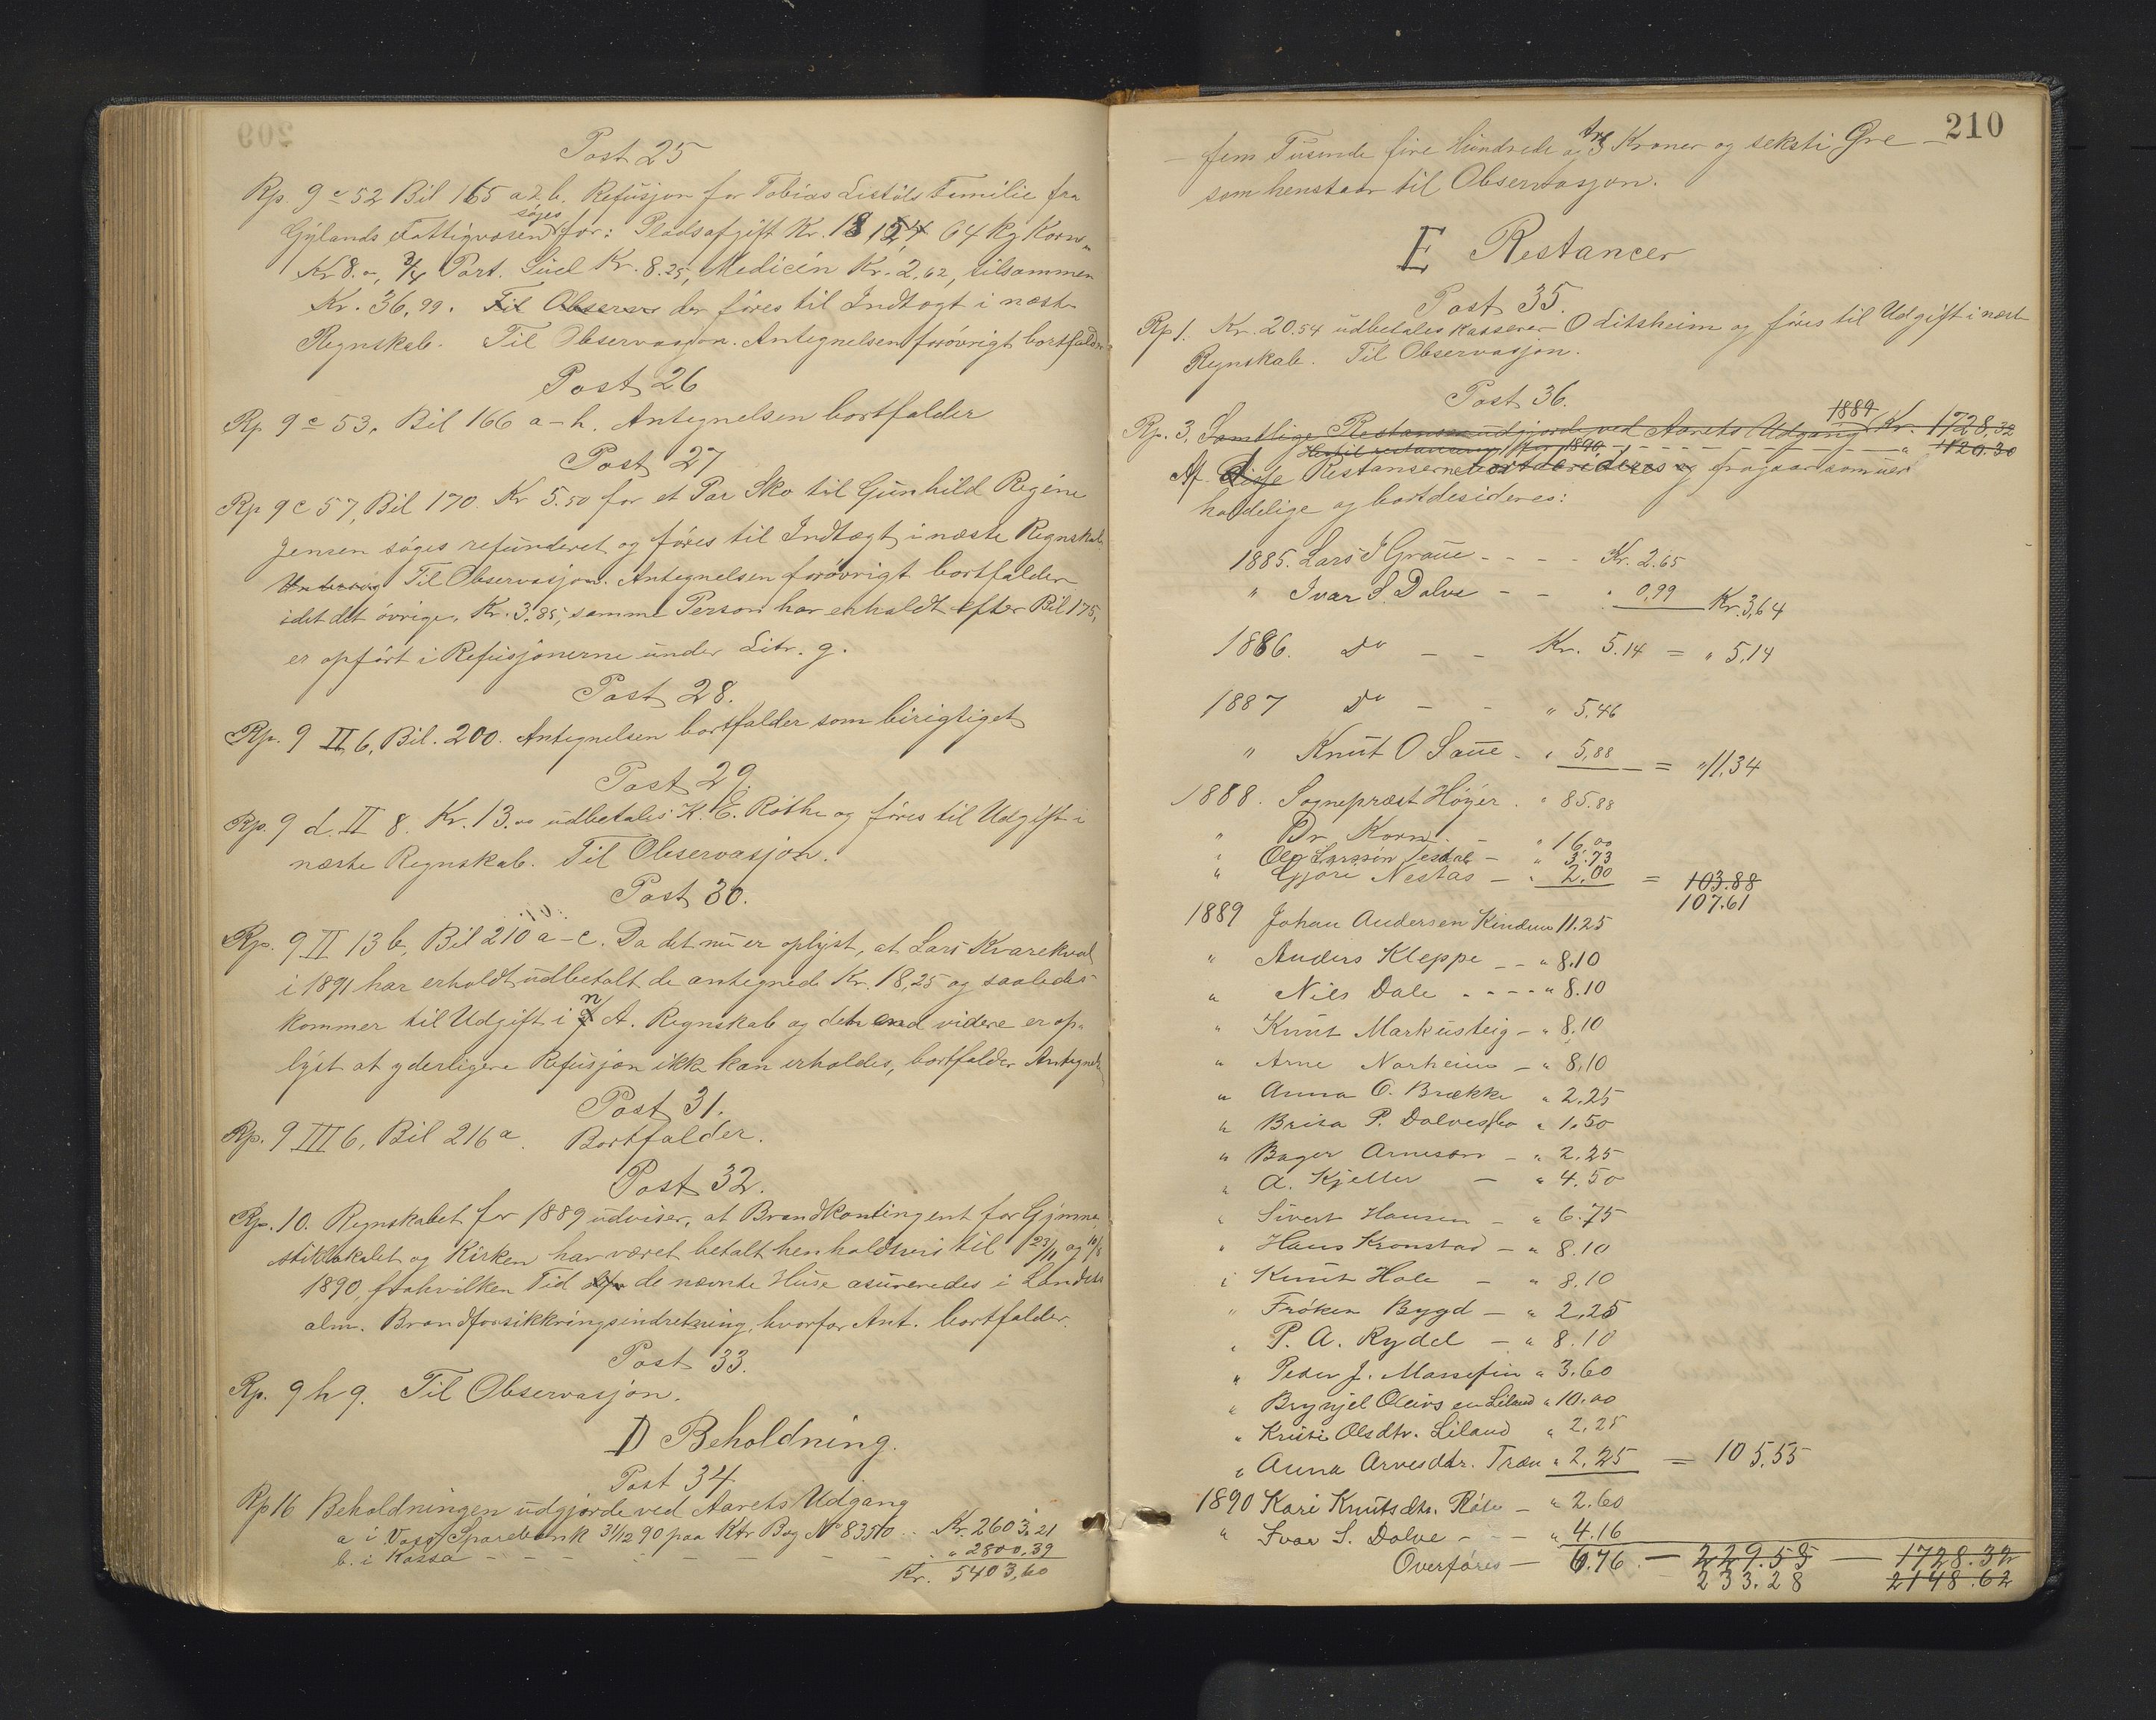 Post 25
Rp. 9 c 52 Bil 165 a & b. Refusjon for Tobias Listöls Familie fra
Gylands Fattigvæsen søges for: Pladsafgift Kr. 18,12, 64 kg Korn
Kr 8.00, 3/4 Part. Suel Kr. 8.25, Medicin Kr. 2.62, tilsammen
Kr. 36,99. Til Observ der föres til Indtægt i næste
Regnskab. Til Observasjon. Antegnelsen forövrigt bortfalder
Post 26
Rp 9 c 53. Bil 166 a-h. Antegnelsen bortfalder
Post 27
Rp 9 c 57, Bil 170. Kr 5.50 for et Par Sko til Gunhild Regine
Jensen söges refunderet og föres til Indtægt i næste Regnskab
Til Observasjon. Antegnelsen forövrigt bortfalder
idet det övrige, Kr. 3.85, samme Person har erholdt efter Bil 175,
er opfört i Refusjonerne under Litr. g.
Post 28.
Rp. 9 II 6, Bil. 200. Antegnelsen bortfalder som birigtiget
Post 29.
Rp. 9 d. II 8. Kr. 13.00 udbetales K. E. Röthe og föres til Udgift i
næste Regnskab. Til Observasjon.
Post 30.
Rp. 9 II 13 b, Bil 210 a-c. Da det nu er oplyst, at Lars Kvarekval
i 1891 har erholdt udbetalt de antegnede Kr. 18,25 og saaledes
kommer til Udgift i n A. Regnskab og det end videre er op-
lyst at yderligere Refusjon ikke kan erholdes, bortfalder Antegnels
Post 31.
Rp. 9 III 6, Bil 216 a. Bortfalder.
Post 32.
Rp. 10. Regnskabet for 1889 udviser, at Brandkontingent for Gymna-
stiklokalet og Kirken har været betalt henholdsvis til 23/11 og 10/8
1890, fra hvilken Tid de nævnte Huse asureredes i Landets
alm. Brandforsikkringsindretning, hvorfor Ant. bortfalder.
Post 33.
Rp. 9 h 9. Til Observasjon.
D Beholdning.
Post 34
Rp 16 Beholdningen udgjorde ved Aarets Udgang
a i Voss Sparebank 31/12 90 paa Ktr Bog No 83510 .. Kr. 2603,21
b. i Kassa - - - - - - - - " 2800,39
Kr. 5403,60
210
- fem Tusinde fire Hundrede og tre Kroner og seksti Øre -
som henstaar til Observasjon.
E Restancer
Post 35.
Rp 1. Kr. 20.54 udbetales Kasserer O Litsheim og föres til Udgift i næste
Regnskab. Til Observasjon.
Post 36.
Rp. 3. Samtlige Restanser udgjorde ved Aarets Udgang 1889 Kr. 1728,32
Hertil restancerne for 1890 - - - - - - " 420.30
Af disse Restanserne bortdesideres og fragaar som uer-
holdelige og bortdesideres:
1885. Lars I Graue - - - - Kr. 2.65
" Ivar S. Dalve - - " 0,99 Kr. 3,64
1886. Do - - Kr. 5.14 = " 5,14
1887 Do - - " 5,46
" Knut O Saue - " 5,88 = " 11,34
1888. Sognepræst Höyer. " 85.88
" Dr Korn. - " 16,00
" Ole Larssön Tesdal - " 3.73
" Gjöri Nestas - " 2.00 = 103.88
107.61
1889 Johan Andersen Kindem 11.25
" Anders Kleppe - - " 8.10
" Nils Dale - - - - " 8.10
" Knut Markusteig - " 8.10
" Arne Norheim - " 8.10
" Anna O. Brække " 2.25
" Brita P. Dalvesflo " 1.50
" Bager Arneson - " 2.25
" A. Kjeller - " 4.50
" Sivert Hansen - " 6.75
" Hans Kronstad - " 8.10
" Knut Hole - " 8.10
" Fröken Bygd - " 2,25
" P. A. Rydel - " 8.10
" Peder J. Massefin " 3.60
" Brynjel Oleivsen Liland " 10.00
" Kristi Olsdtr. Liland " 2,25
" Anna Arvesdtr. Træn " 2.25 = 105.55
1890 Kari Knutsdtr. Röte - " 2.60
" Ivar S. Dalve - - - " 4.16
Overföres - 6.76 - 229.55 - 1728.32
233.28 2148.62